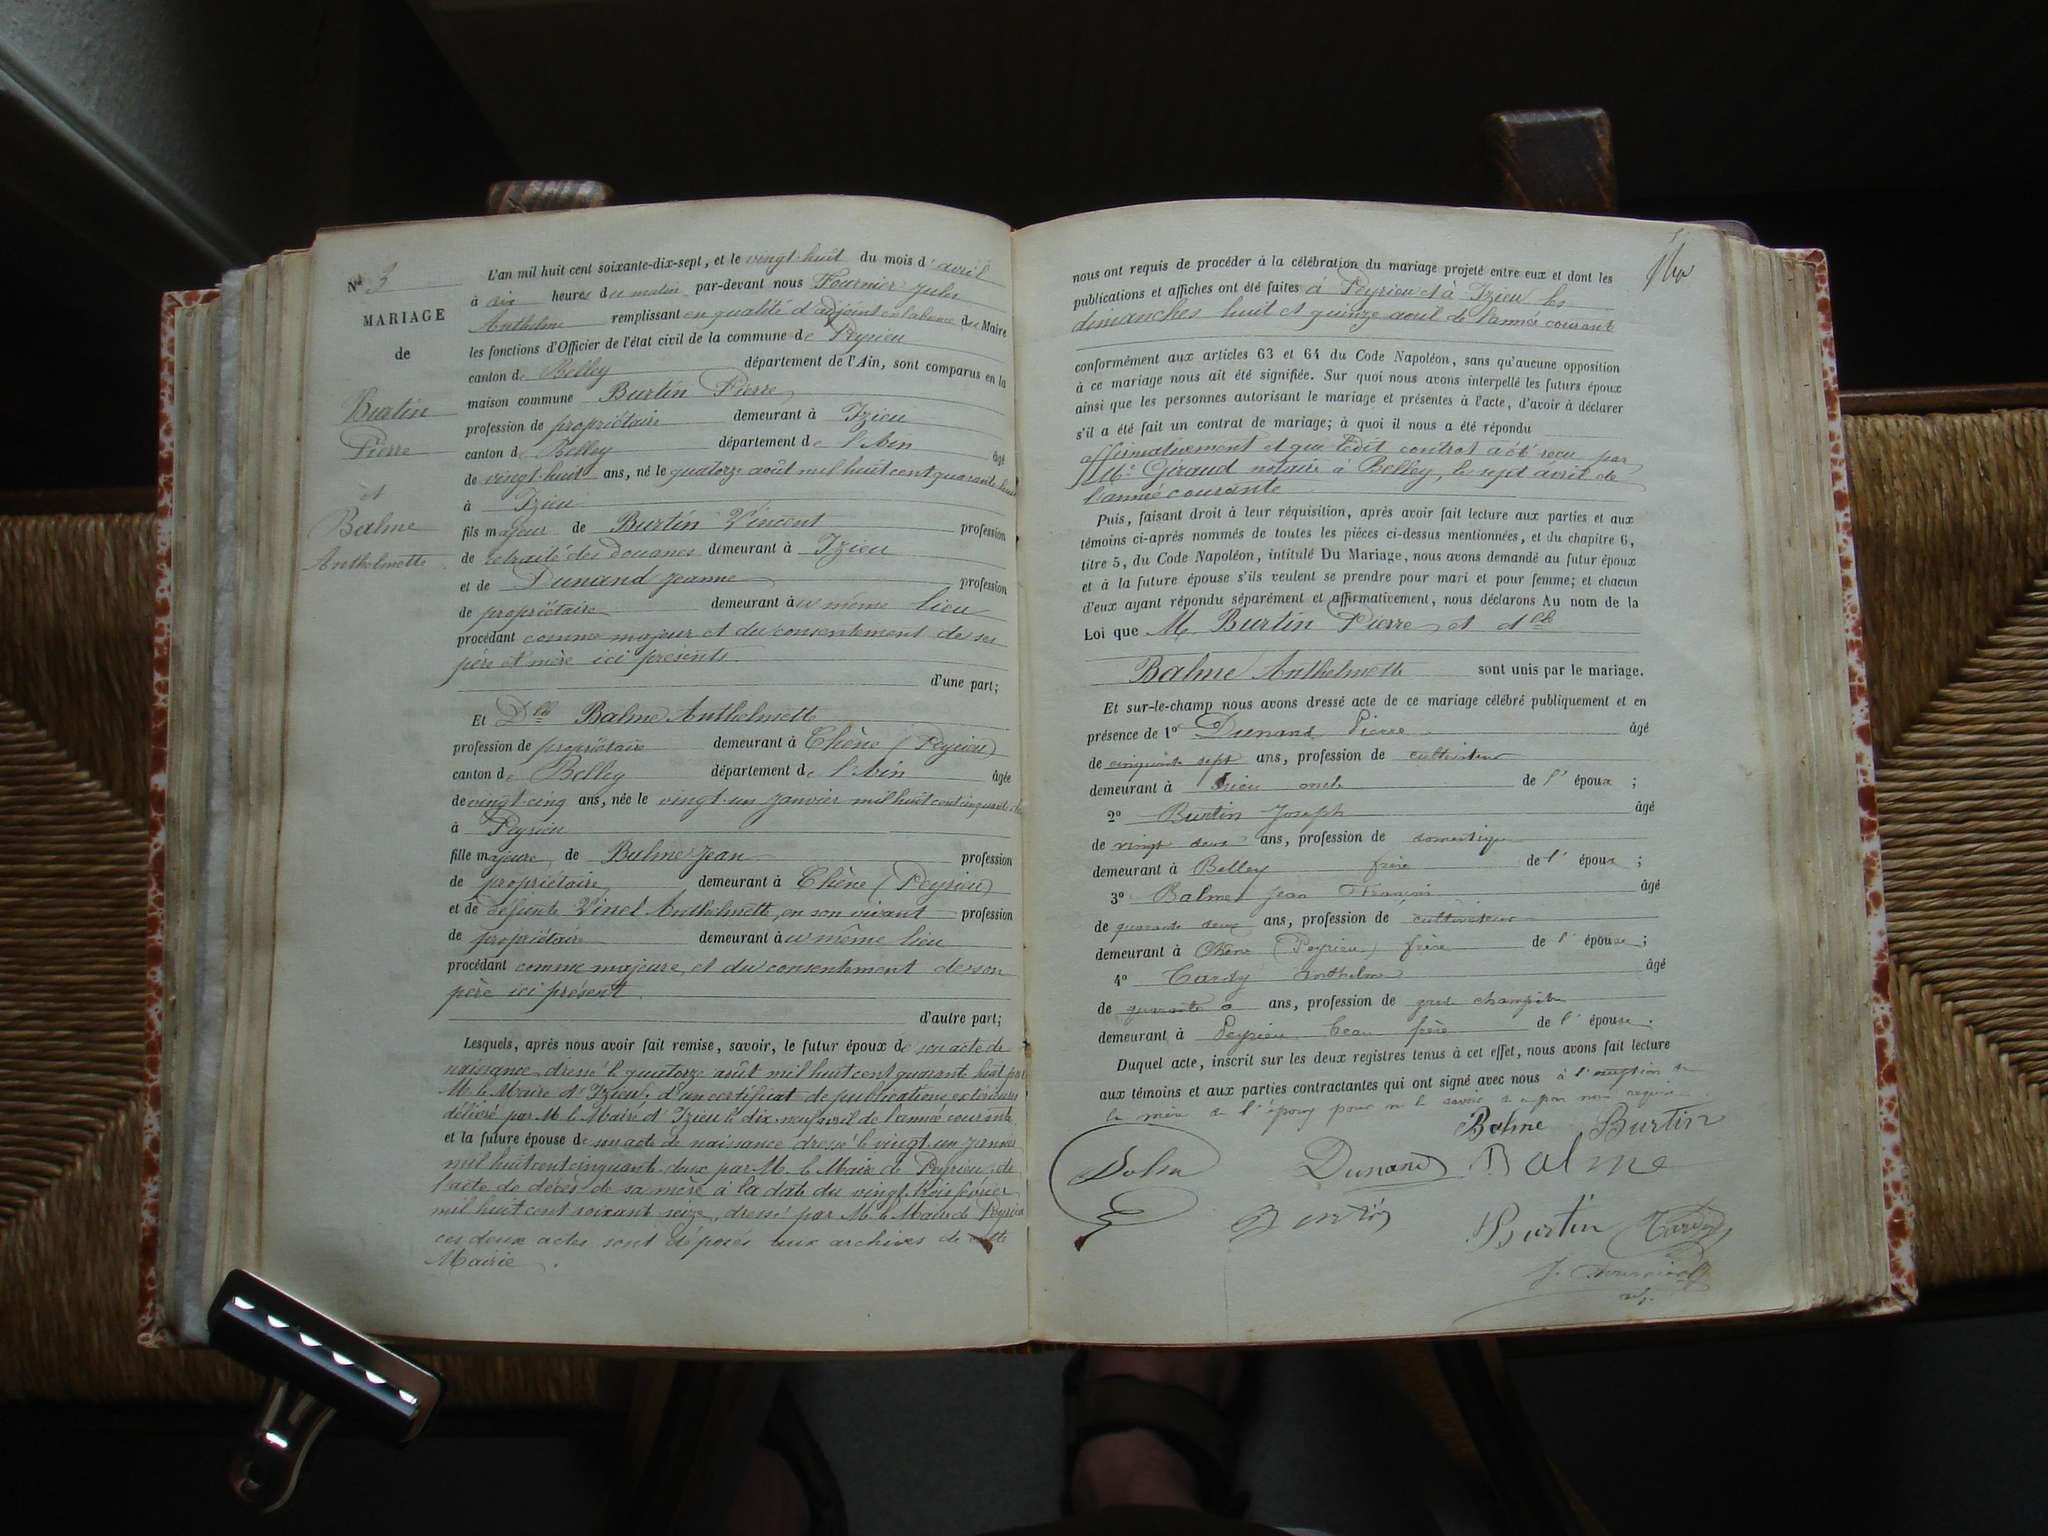 N° 3
MARIAGE
de
Burtin
Pierre
et
Balme
Anthelmette
L'an mil huit cent soixante-dix-sept, et le vingt-huit du mois d'avril
à dix heures du matin par-devant nous Fournier Jules
Anthelme remplissant en qualité d'adjoint en l'absence du Maire
les fonctions d'Officier de l'état civil de la commune de Peyrieu
canton de Belley département de l'Ain, sont comparus en la
maison commune Burtin Pierre
profession de propriétaire demeurant à Izieu
canton de Belley département de l'Ain âgé
de vingt-huit ans, né le quatorze août mil huit cent quarante huit
à Izieu
fils majeur de Burtin Vincent profession
de retraité des douanes demeurant à Izieu
et de Dunand Jeanne profession
de propriétaire demeurant au même lieu
procédant comme majeur et du consentement de ses
père et mère ici présents
d'une part;
Et Dlle Balme Anthelmette
profession de propriétaire demeurant à Chêne (Peyrieu)
canton de Belley département de l'Ain âgée
de vingt-cinq ans, née le vingt-un janvier mil huit cent cinquante
à Peyrieu
fille majeure de Balme Jean profession
de propriétaire demeurant à Chêne (Peyrieu)
et de défunte Vinel Anthelmette, en son vivant profession
de propriétaire demeurant au même lieu
procédant comme majeure et du consentement de son
père ici présent
d'autre part;
Lesquels, après nous avoir fait remise, savoir, le futur époux de son acte de
naissance dressé le quatorze août mil huit cent quarante huit par
M. le Maire d'Izieu, d'un certificat de publications extérieures
délivré par M. le Maire d'Izieu le dix-neuf avril de l'année courante
et la future épouse de son acte de naissance dressé le vingt-un janvier
mil huit cent cinquante deux par M. le Maire de Peyrieu, de
l'acte de décès de sa mère à la date du vingt-trois février
mil huit cent soixante seize, dressé par M. le Maire de Peyrieu
ces deux actes sont déposés aux archives de cette
Mairie.
nous ont requis de procéder à la célébration du mariage projeté entre eux et dont les
publications et affiches ont été faites à Peyrieu et à Izieu les
dimanches huit et quinze avril de l'année courante
conformément aux articles 63 et 64 du Code Napoléon, sans qu'aucune opposition
à ce mariage nous ait été signifiée. Sur quoi nous avons interpellé les futurs époux
ainsi que les personnes autorisant le mariage et présentes à l'acte, d'avoir à déclarer
s'il a été fait un contrat de mariage; à quoi il nous a été répondu
affirmativement et que ledit contrat a été reçu par
Me Giraud notaire à Belley, le sept avril de
l'année courante
Puis, faisant droit à leur réquisition, après avoir fait lecture aux parties et aux
témoins ci-après nommés de toutes les pièces ci-dessus mentionnées, et du chapitre 6,
titre 5, du Code Napoléon, intitulé Du Mariage, nous avons demandé au futur époux
et à la future épouse s'ils veulent se prendre pour mari et pour femme; et chacun
d'eux ayant répondu séparément et affirmativement, nous déclarons Au nom de la
Loi que M. Burtin Pierre et dlle
Balme Anthelmette sont unis par le mariage.
Et sur-le-champ nous avons dressé acte de ce mariage célébré publiquement et en
présence de 1° Dunand Pierre âgé
de cinquante sept ans, profession de cultivateur
demeurant à Izieu oncle de l'époux;
2° Burtin Joseph âgé
de vingt deux ans, profession de domestique
demeurant à Belley frère de l'époux;
3° Balme Jean François âgé
de quarante deux ans, profession de cultivateur
demeurant à Chêne (Peyrieu) frère de l'épouse;
4° Tardy Anthelme âgé
de quarante ans, profession de garde champêtre
demeurant à Peyrieu beau frère de l'épouse.
Duquel acte, inscrit sur les deux registres tenus à cet effet, nous avons fait lecture
aux témoins et aux parties contractantes qui ont signé avec nous à l'exception de
la mère de l'époux pour ne le savoir de ce par nous requise
Balme Burtin
Dunand Balme
Burtin
Burtin Tardy
J. Fournier
adj.